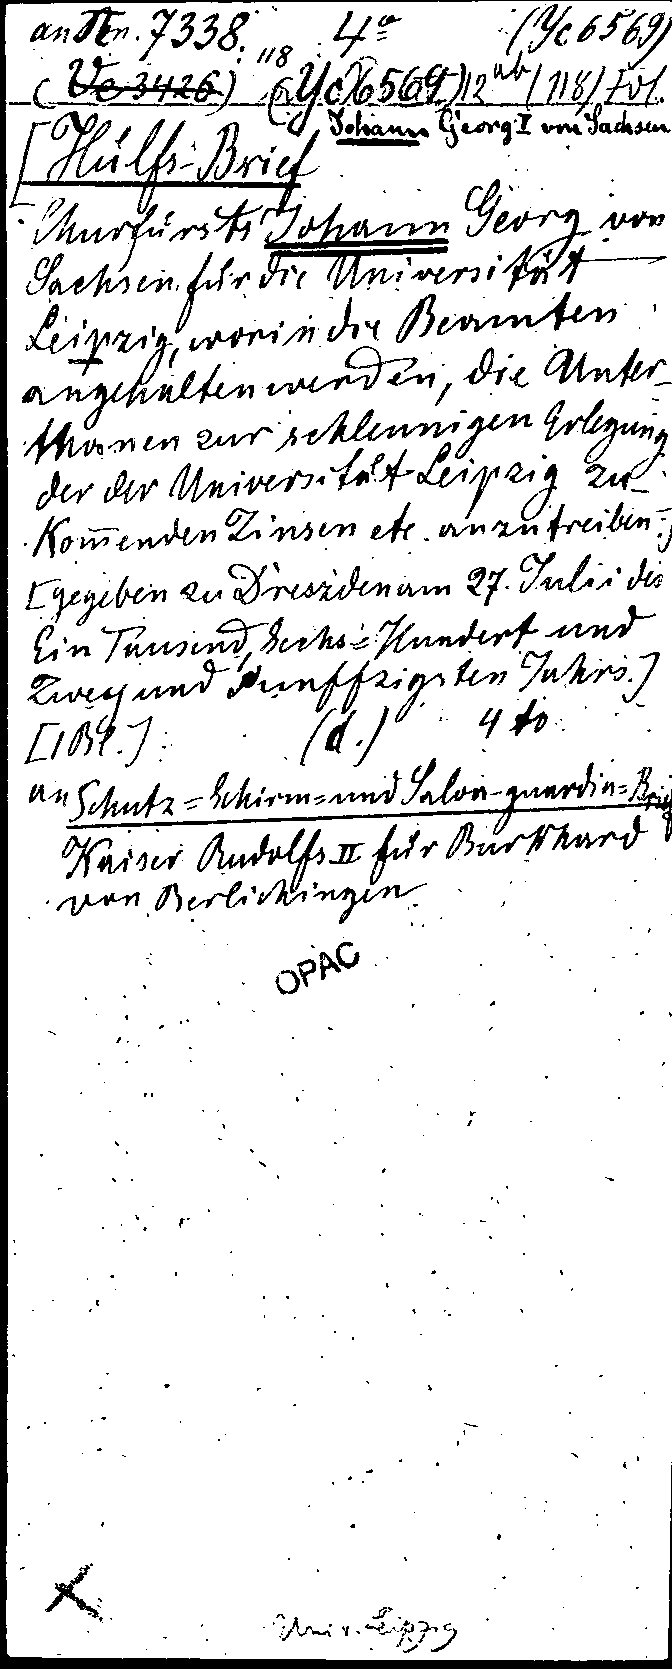 an An. 7338. 4ᵒ (Yc 6569)
(Ve 3426) 118 (Yc 6569) 12 ab (118) Fol.
Johann Georg I von Sachsen
[Hülfs-Brief
Churfürsts Johann Georg von
Sachsen für die Universität
Leipzig, worin die Beamten
angehalten werden, die Unter-
thanen zur schleunigen Erlegung
der der Universität Leipzig zu-
kom̄enden Zinsen etc. anzutreiben.]
[gegeben zu Dreszden am 27. Julii des
Ein Tausend, Sechs-Hundert und
Zwey und Funffzigsten Jahrs.]
[1 Bl.] (d.) 4 to
an Schutz= Schirm= und Salva-guardia= Brief
Kaiser Rudolfs II für Burkhard
von Berlichingen
OPAC
Univ. Leipzig